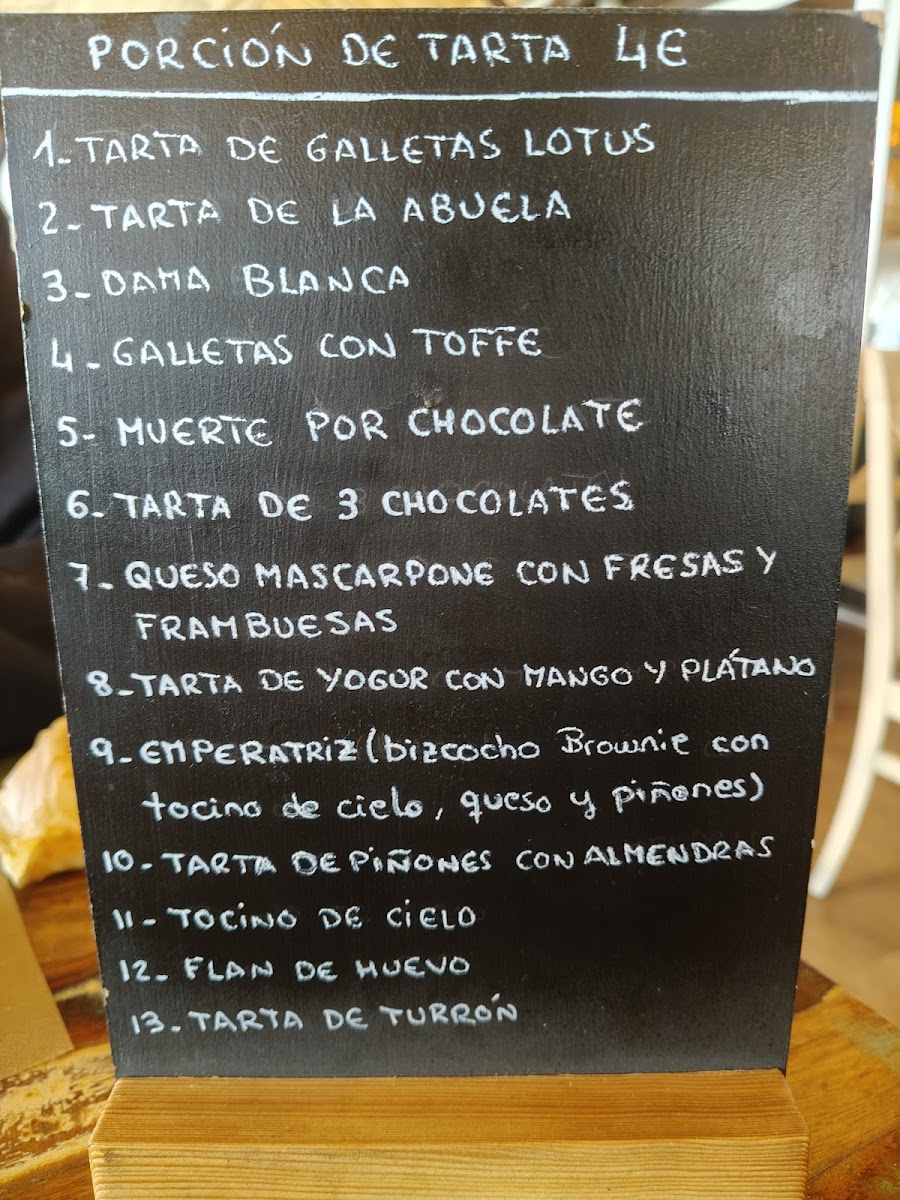 PORCIÓN DE TARTA 4€
1-TARTA DE GALLETAS LOTUS
2-TARTA DE LA ABUELA
3-DAMA BLANCA
4-GALLETAS CON TOFFE
5- MUERTE POR CHOCOLATE
6-TARTA DE 3 CHOCOLATES
7-QUESO MASCARPONE CON FRESAS Y
FRAMBUESAS
8-TARTA DE YOGUR CON MANGO Y PLÁTANO
9-EMPERATRIZ (bizcocho Brownie con
tocino de cielo, queso y piñones)
10-TARTA DE PIÑONES CON ALMENDRAS
11-TOCINO DE CIELO
12-FLAN DE HUEVO
13-TARTA DE TURRÓN